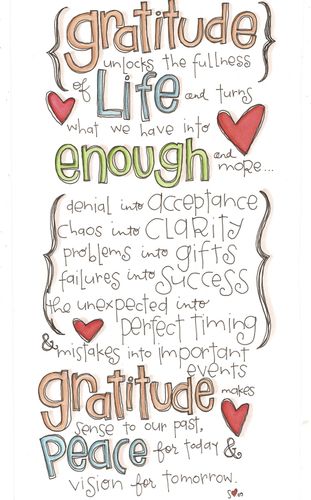 {gratitude}
unlocks the fullness
of Life and turns
what we have into
enough and
more...
{denial into acceptance
chaos into CLARITY
problems into gifts
failures into Success
the unexpected into
perfect timing}
& mistakes into important
events
gratitude makes
sense to our past,
Peace for today &
vision for tomorrow.